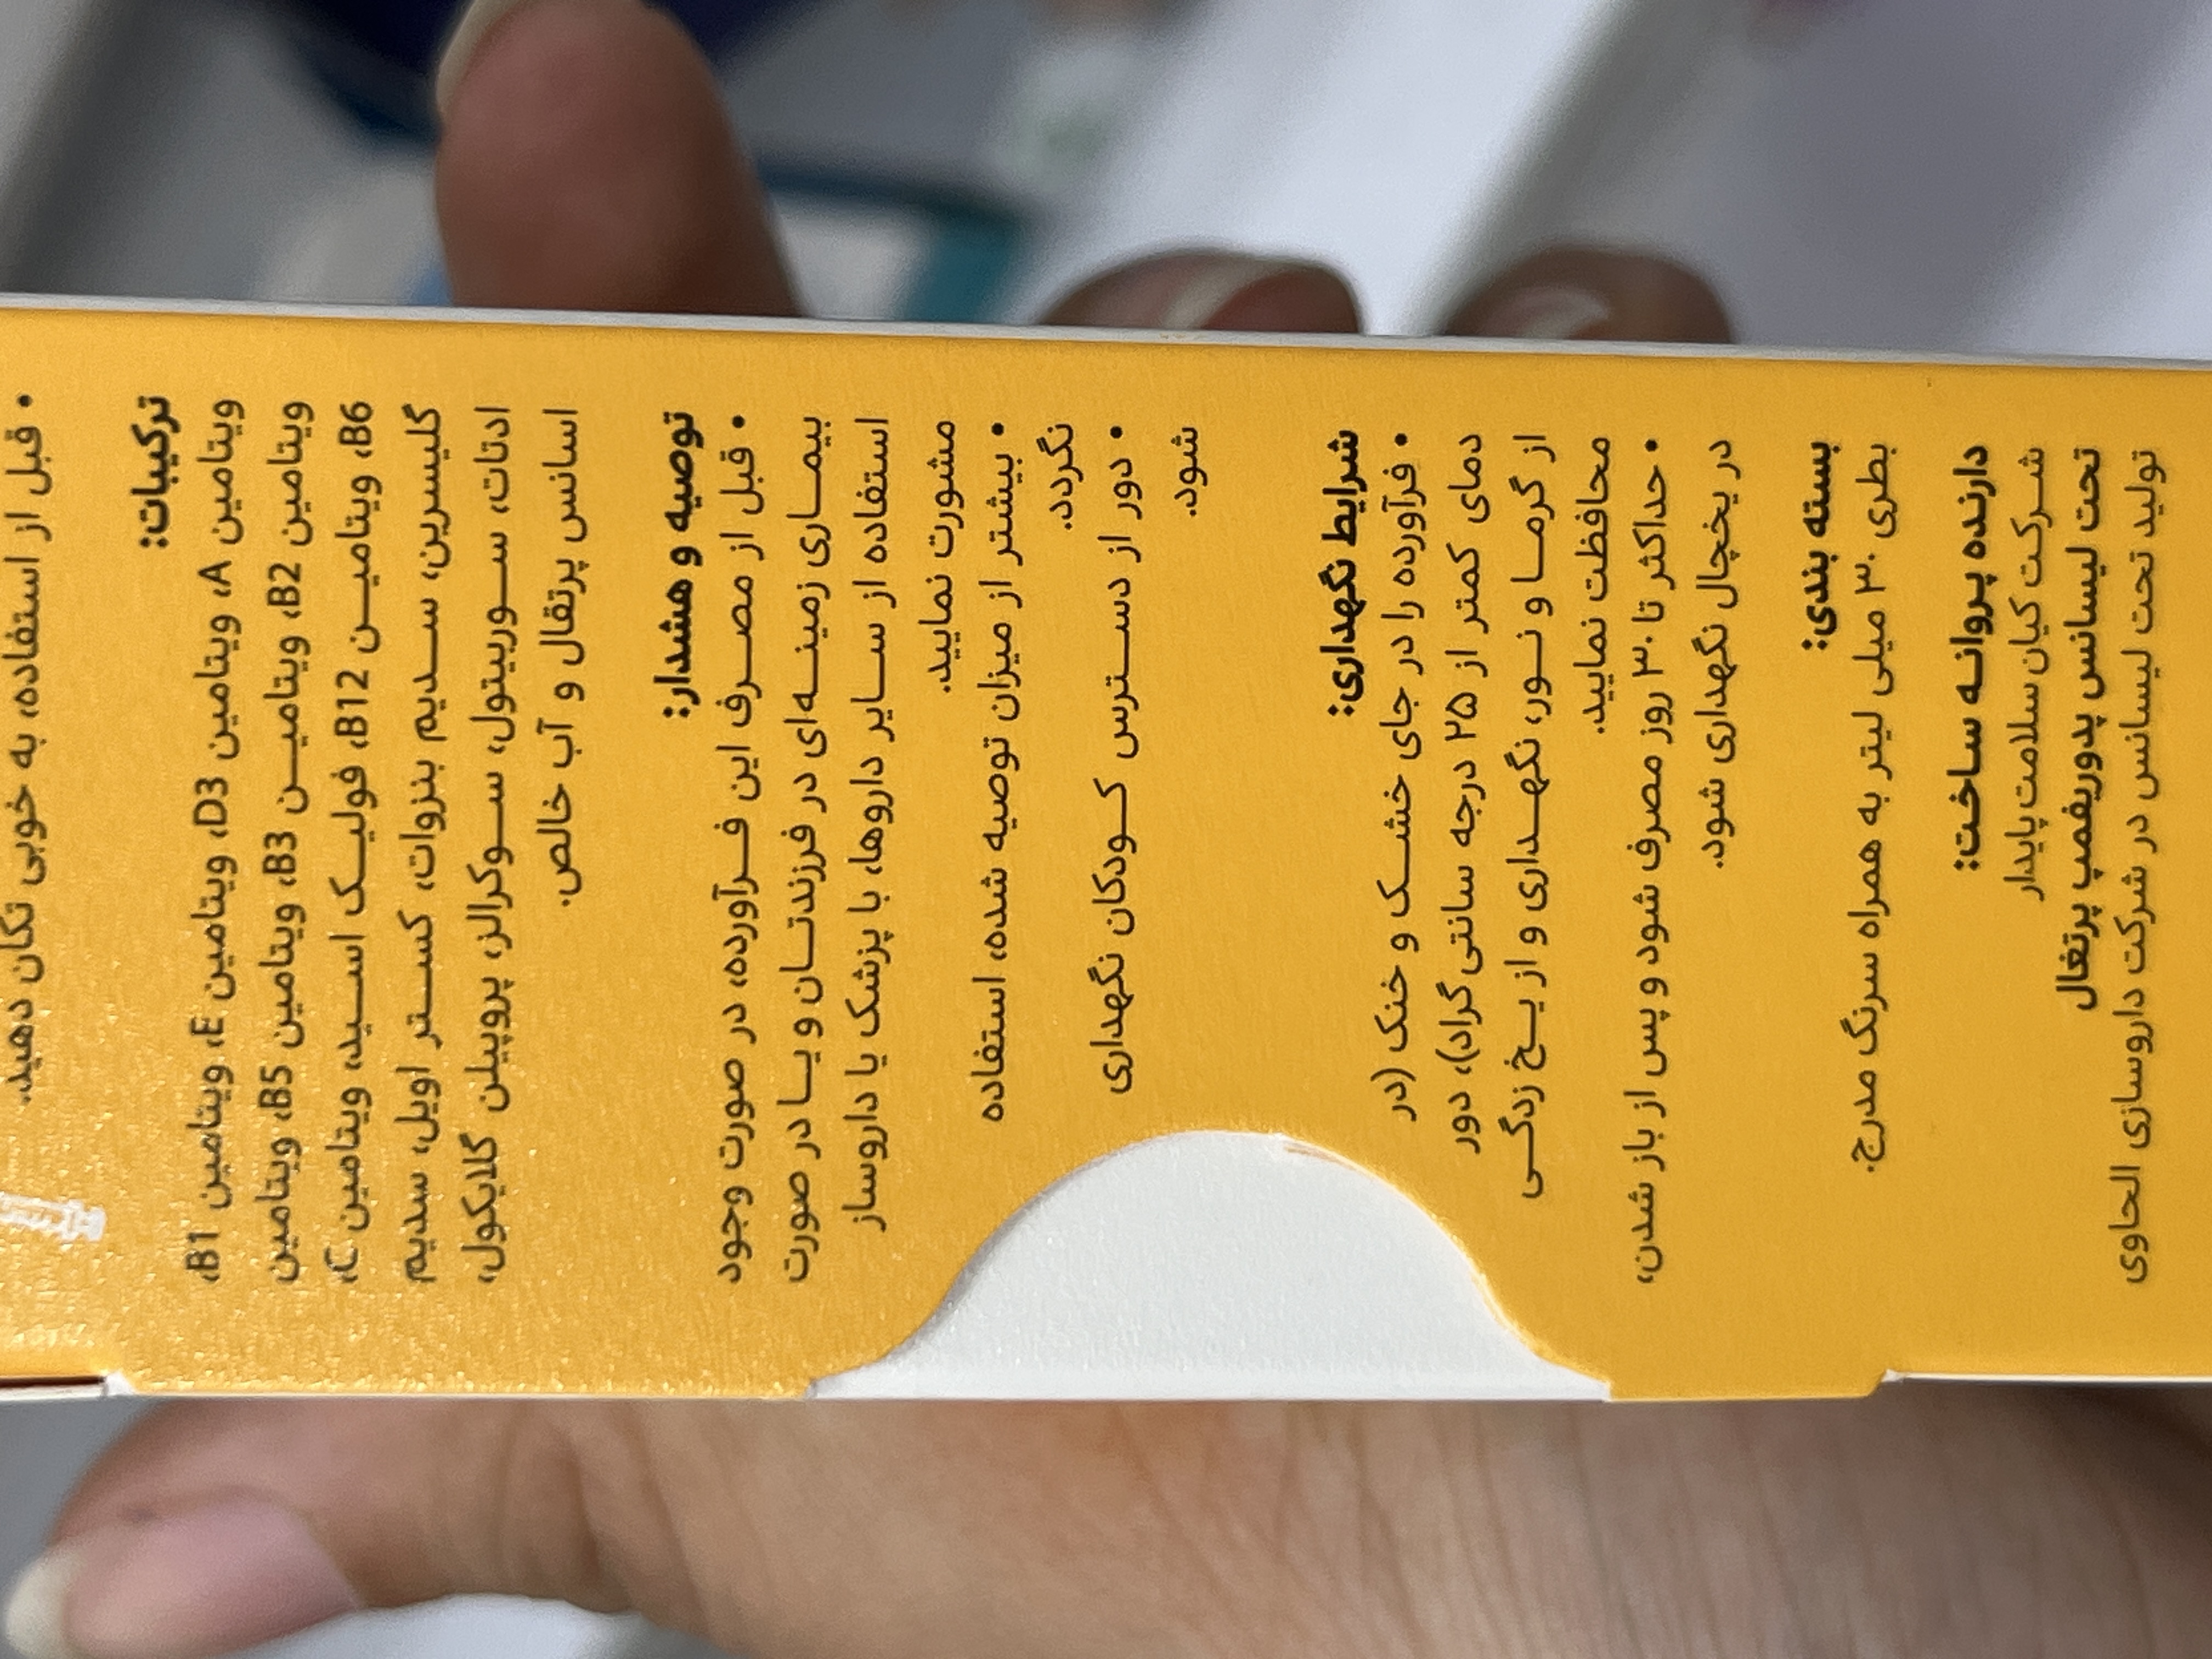 • قبل از استفاده، به خوبی تکان دهید.
ترکیبات:
ویتامین A، ویتامین D3، ویتامین E، ویتامین B1،
ویتامین B2، ویتامیـن B3، ویتامین B5، ویتامین
B6، ویتامیـن B12، فولیـک اسـید، ویتامین C،
گلیسرین، سـدیم بنزوات، کسـتر اویل، سدیم
ادتات، سـوربیتول، سـوکرالز، پروپیلن گلایکول،
اسانس پرتقال و آب خالص.
توصیه و هشدار:
• قبل از مصـرف این فـرآورده، در صورت وجود
بیمـاری زمینـه‌ای در فرزندتـان و یـا در صورت
استفاده از سـایر داروها، با پزشک یا داروساز
مشورت نمایید.
• بیشتر از میزان توصیه شده، استفاده
نگردد.
• دور از دسـترس کـودکان نگهداری
شود.
شرایط نگهداری:
• فرآورده را در جای خشـک و خنک (در
دمای کمتر از ۲۵ درجه سانتی‌گراد)، دور
از گرمـا و نـور، نگهـداری و از یـخ زدگـی
محافظت نمایید.
• حداکثر تا ۳۰ روز مصرف شود و پس از باز شدن،
در یخچال نگهداری شود.
بسته بندی:
بطری ۳۰ میلی لیتر به همراه سرنگ مدرج.
دارنده پروانه ساخت:
شـرکت کیان سلامت پایدار
تحت لیسانس پدوریفمپ پرتغال
تولید تحت لیسانس در شرکت داروسازی الحاوی